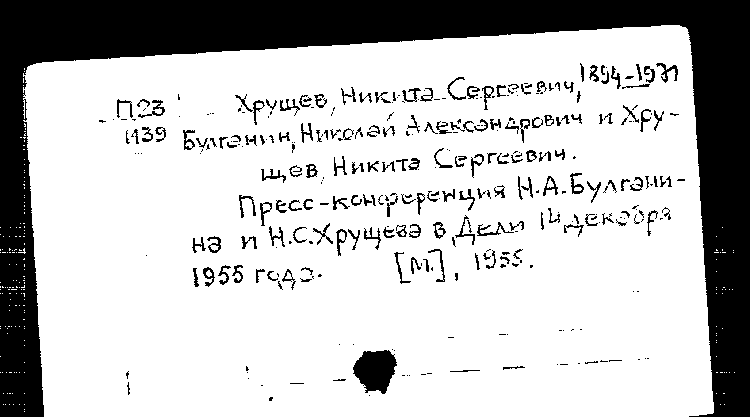 П23 Хрущев, Никита Сергеевич, 1894-1971
И39 Булганин, Николай Александрович и Хру-
щев, Никита Сергеевич.
Пресс-конференция Н.А.Булгани-
на и Н.С.Хрущева в Дели 14 декабря
1955 года. [М.], 1955.